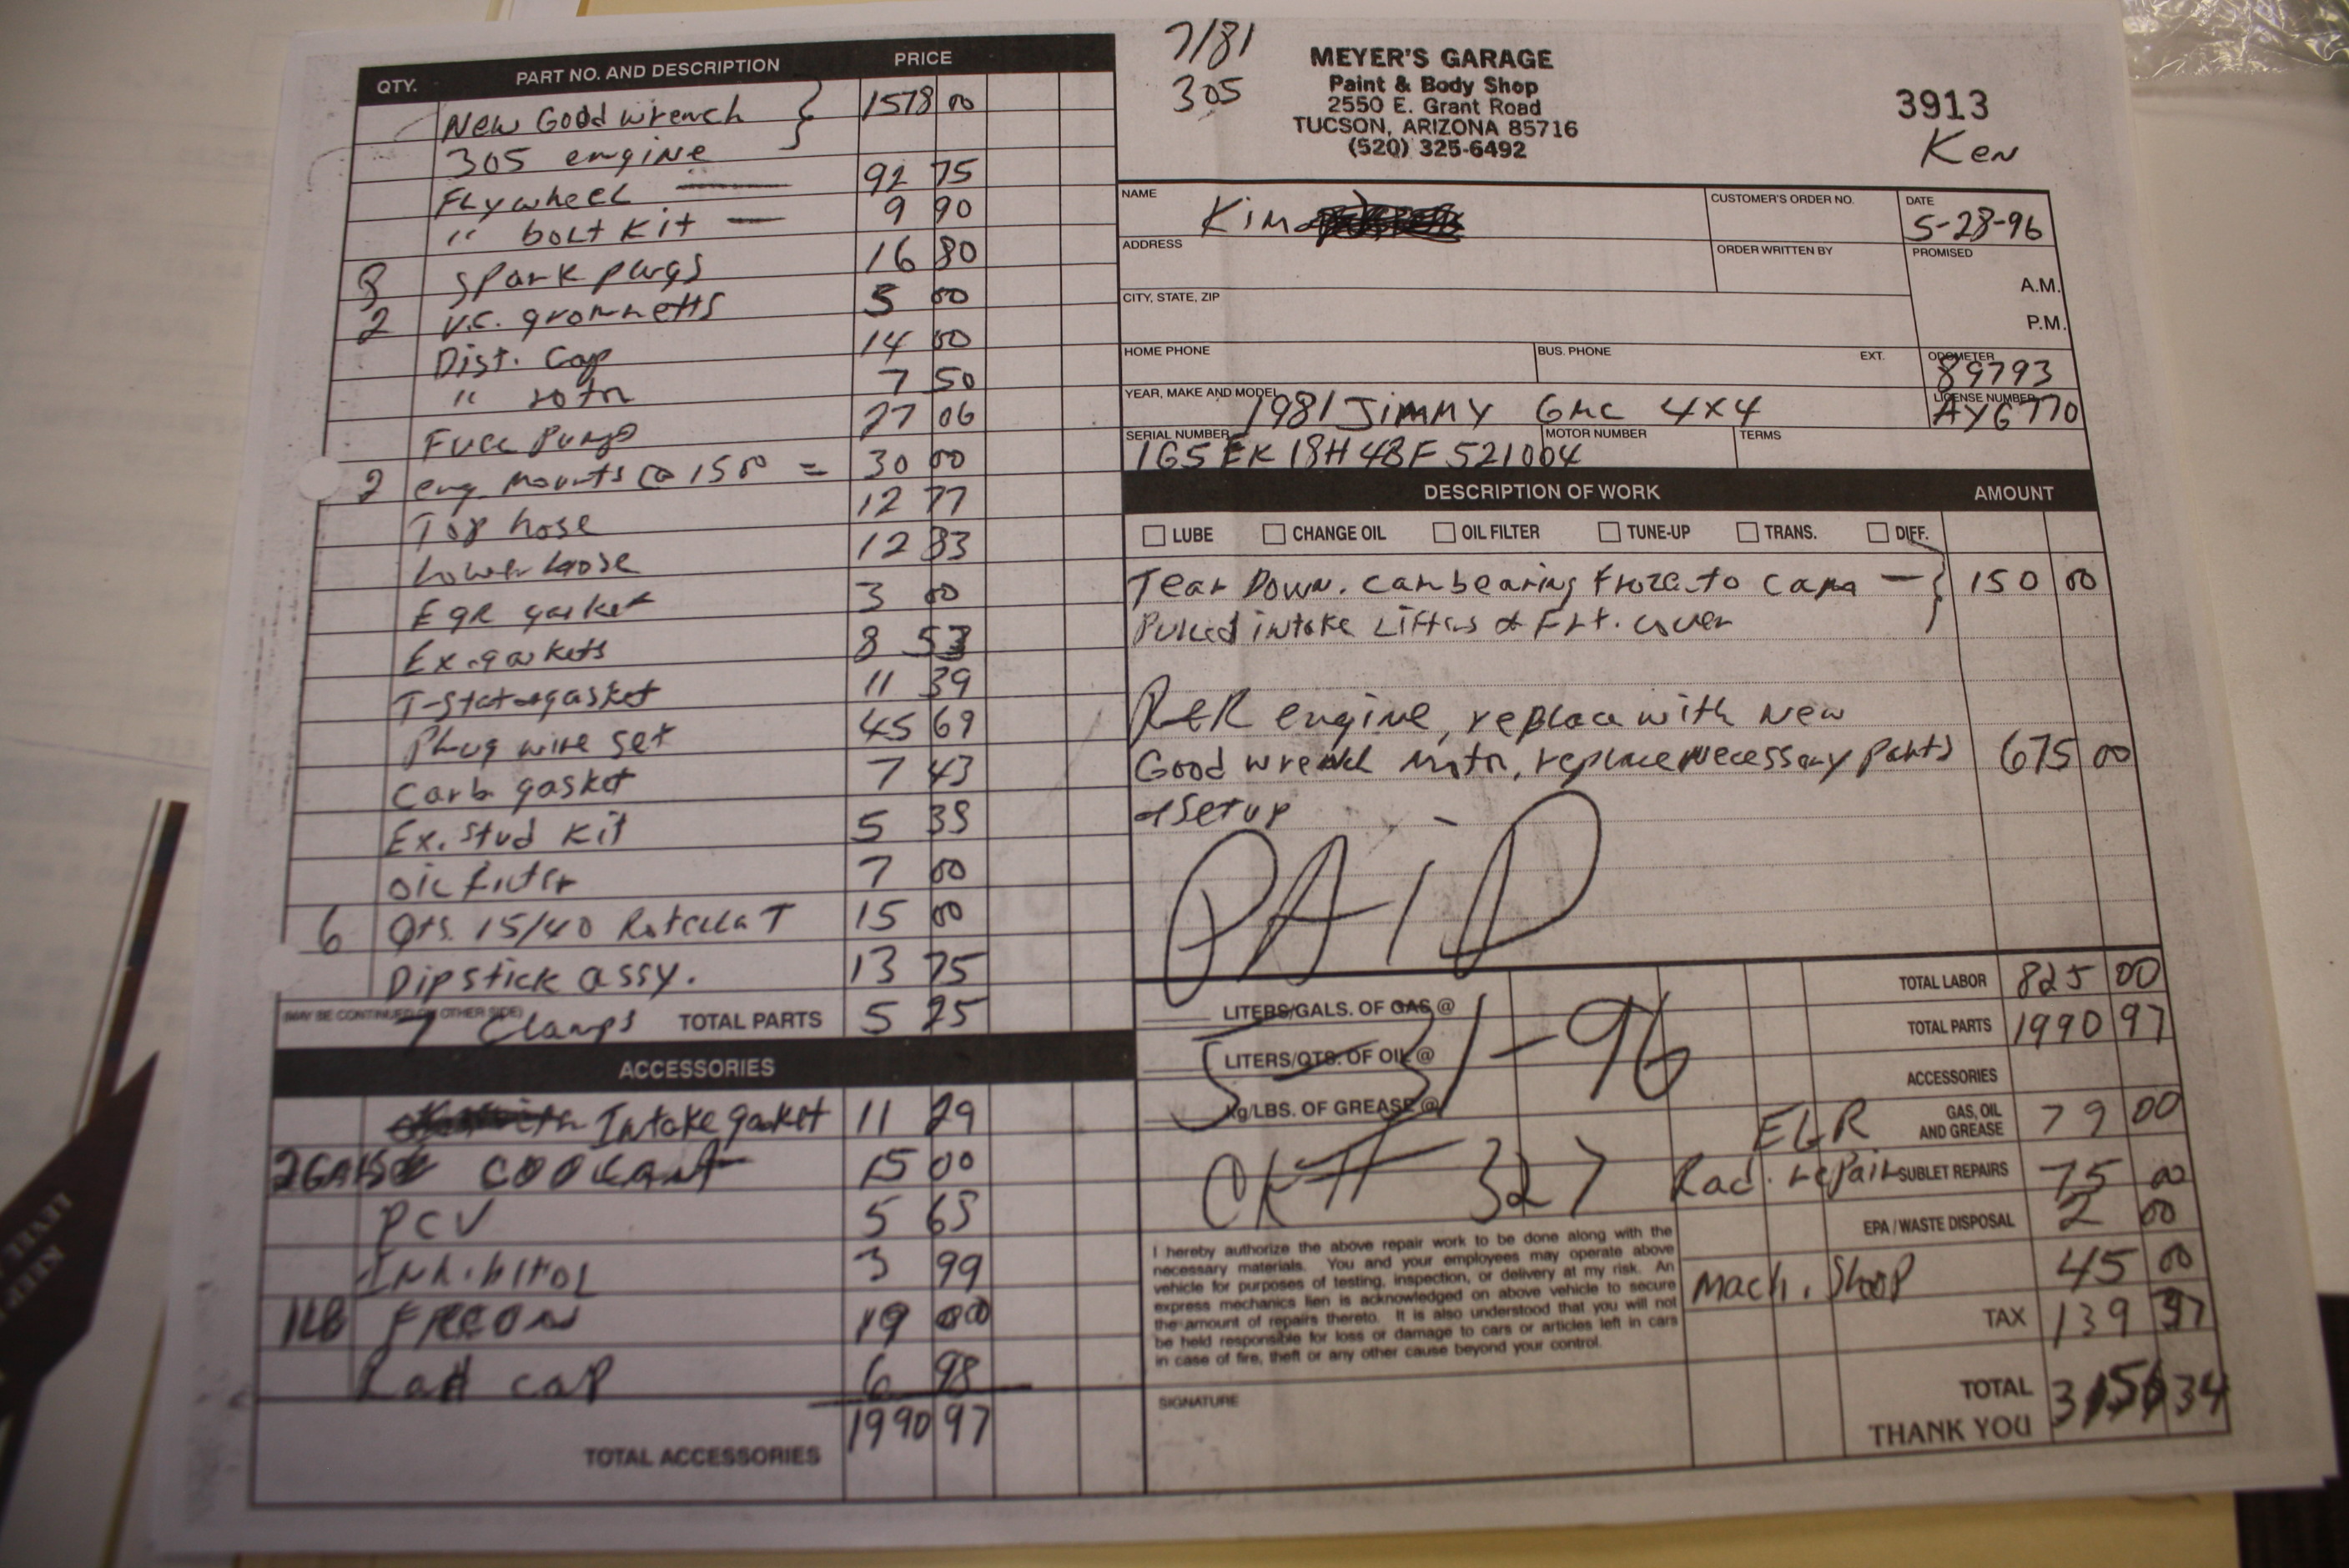 QTY. PART NO. AND DESCRIPTION PRICE
New Goodwrench 1578 00
305 engine
Flywheel — 92 75
" bolt kit — 9 90
8 Spark plugs 16 80
2 V.C. grommetts 5 00
Dist. Cap 14 00
" rotor 7 50
Fuel Pump 27 06
2 eng. mounts @ 15 00 = 30 00
Top hose 12 77
Lower hose 12 83
EGR gasket 3 00
Ex. gaskets 8 53
T-stat & gasket 11 39
Plug wire set 45 69
Carb gasket 7 43
Ex. Stud Kit 5 35
Oil Filter 7 00
6 Qts. 15/40 Rotella T 15 00
Dipstick assy. 13 75
(MAY BE CONTINUED ON OTHER SIDE)
7 Clamps TOTAL PARTS 5 25
ACCESSORIES
Intake gasket 11 29
2 GALS Coolant 15 00
PCV 5 65
Inhibitol 3 99
1LB FREON 19 00
Rad cap 6 98
TOTAL ACCESSORIES 1990 97
7/81
305
MEYER'S GARAGE
Paint & Body Shop
2550 E. Grant Road
TUCSON, ARIZONA 85716
(520) 325-6492
3913
Ken
NAME Kim
CUSTOMER'S ORDER NO.
DATE 5-28-96
ADDRESS
ORDER WRITTEN BY
PROMISED
A.M.
P.M.
CITY, STATE, ZIP
HOME PHONE
BUS. PHONE
EXT.
ODOMETER 89793
YEAR, MAKE AND MODEL 1981 Jimmy GMC 4x4
LICENSE NUMBER AYG770
SERIAL NUMBER 1G5EK18H4BF521004
MOTOR NUMBER
TERMS
DESCRIPTION OF WORK AMOUNT
LUBE CHANGE OIL OIL FILTER TUNE-UP TRANS. DIFF.
Tear Down. cam bearing froze to cam — 150 00
Pulled intake Lifters & Frt. cover
R&R engine, replace with New
Good wrench Motor, replace Necessary parts 675 00
& Setup
PAiD
5-31-96
CK# 327
LITERS/GALS. OF GAS @
LITERS/QTS. OF OIL @
Kg/LBS. OF GREASE @
TOTAL LABOR 825 00
TOTAL PARTS 1990 97
ACCESSORIES
EGR GAS, OIL AND GREASE 79 00
Rad. repair SUBLET REPAIRS 75 00
EPA / WASTE DISPOSAL 2 00
Mach. Shop 45 00
TAX 139 37
TOTAL 3156 34
THANK YOU
I hereby authorize the above repair work to be done along with the
necessary materials. You and your employees may operate above
vehicle for purposes of testing, inspection, or delivery at my risk. An
express mechanics lien is acknowledged on above vehicle to secure
the amount of repairs thereto. It is also understood that you will not
be held responsible for loss or damage to cars or articles left in cars
in case of fire, theft or any other cause beyond your control.
SIGNATURE